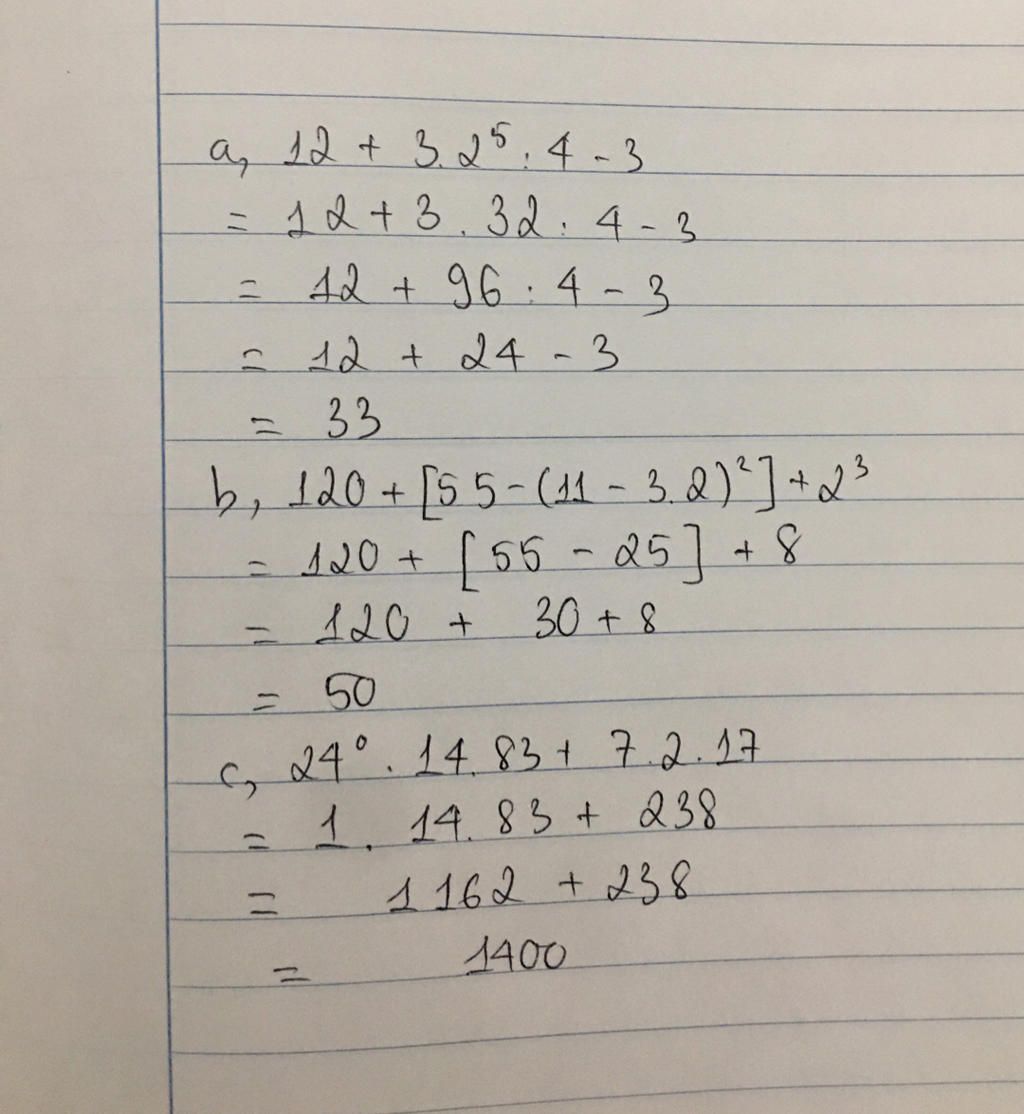 a, 12 + 3.2⁵ : 4 - 3
= 12 + 3 . 32 : 4 - 3
= 12 + 96 : 4 - 3
= 12 + 24 - 3
= 33
b, 120 + [55 - (11 - 3.2)²] + 2³
= 120 + [55 - 25] + 8
= 120 + 30 + 8
= 50
c, 24⁰ . 14.83 + 7.2.17
= 1 . 14.83 + 238
= 1162 + 238
= 1400